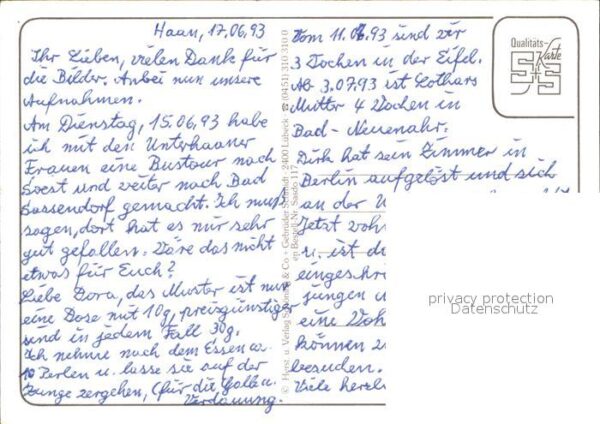 Haan, 17.06.93
Ihr Lieben, vielen Dank für
die Bilder. Anbei nun unsere
Aufnahmen.
Am Dienstag, 15.06.93 habe
ich mit den Unterhaaner
Frauen eine Bustour nach
Soest und weiter nach Bad
Sassendorf gemacht. Ich muß
sagen, dort hat es mir sehr
gut gefallen. Wäre das nicht
etwas für Euch?
Liebe Dora, das Muster ist nun
eine Dose mit 10g, preisgünstiger
sind in jedem Fall 30g.
Ich nehme nach dem Essen ca.
10 Perlen u. lasse sie auf der
Zunge zergehen, (für die Galle u.
Verdauung.
© Herst. u. Verlag Schöning & Co · Gebrüder Schmidt · 2400 Lübeck · ☎ (0451) 310 310 0
Vom 11.06.93 sind wir
3 Wochen in der Eifel.
Ab 3.07.93 ist Lothars
Mutter 4 Wochen in
Bad-Neuenahr.
Dirk hat sein Zimmer in
Berlin aufgelöst und sich
an der U
Jetzt woh
u. ist de
eingeschr
jungen u
eine Woh
können z
besuchen.
Viele herzl
Qualitäts-
Karte
S+S
privacy protection
Datenschutz